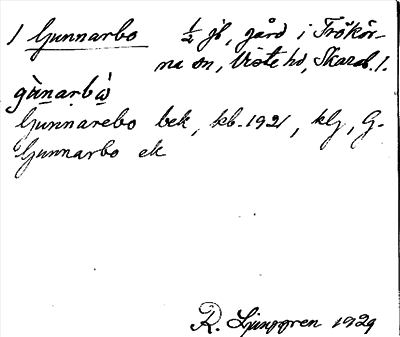 1 Gunnarbo ½ jb, gård i Trökör-
na sn, Viste hd, Skarab. l.
gùnarbò
Gunnarebo bek, kb. 1921, klj, G-
Gunnarbo ek
R. Ljunggren 1929